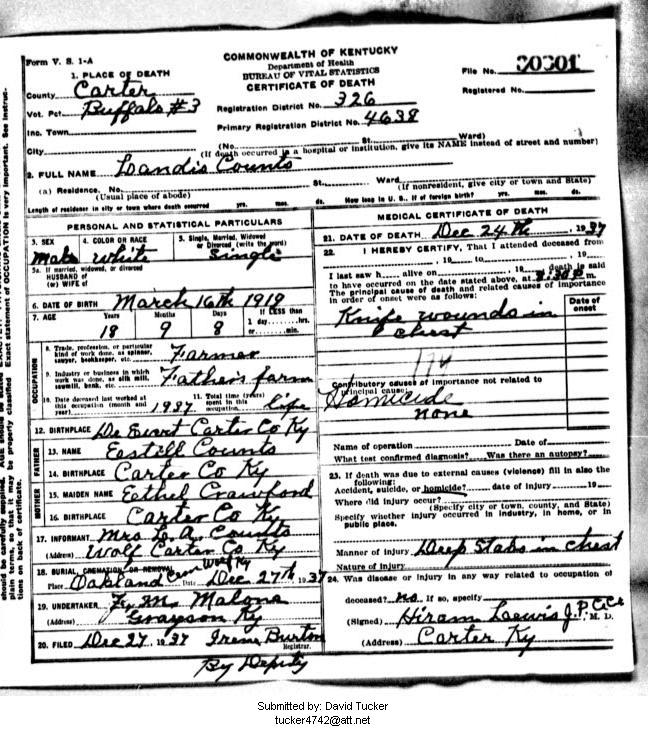 Form V. S. 1-A
COMMONWEALTH OF KENTUCKY
Department of Health
BUREAU OF VITAL STATISTICS
CERTIFICATE OF DEATH
File No. 30301
Registered No.
1. PLACE OF DEATH
County Carter
Vot. Pct. Buffalo #3
Inc. Town
City
Registration District No. 326
Primary Registration District No. 4638
(No. St. Ward)
(If death occurred in a hospital or institution, give its NAME instead of street and number)
2. FULL NAME Landis Counts
(a) Residence. No. St. Ward
(Usual place of abode) (If nonresident, give city or town and State)
Length of residence in city or town where death occurred yrs. mos. ds. How long in U. S., if of foreign birth? yrs. mos. ds.
PERSONAL AND STATISTICAL PARTICULARS
3. SEX 4. COLOR OR RACE 5. Single, Married, Widowed
or Divorced (write the word)
Male white Single
5a. If married, widowed, or divorced
HUSBAND of
(or) WIFE of
6. DATE OF BIRTH March 16th 1919
7. AGE Years Months Days If LESS than
1 day, hrs.
or min.
18 9 8
OCCUPATION
8. Trade, profession, or particular
kind of work done, as spinner,
sawyer, bookkeeper, etc. Farmer
9. Industry or business in which
work was done, as silk mill,
sawmill, bank, etc. Father's farm
10. Date deceased last worked at
this occupation (month and
year) 1937
11. Total time (years)
spent in this
occupation life
12. BIRTHPLACE Carter Co Ky
FATHER
13. NAME Eastill Counts
14. BIRTHPLACE Carter Co Ky
MOTHER
15. MAIDEN NAME Eathel Crawford
16. BIRTHPLACE Carter Co Ky
17. INFORMANT Mrs L. A. Counts
(Address) Wolf Carter Co Ky
18. BURIAL, CREMATION OR REMOVAL
Place Oakland Cem Wolf Ky Date Dec 27th 1937
19. UNDERTAKER F. M. Malone
(Address) Grayson Ky
20. FILED Dec 27, 1937 Irene Burton
Registrar.
By Deputy
MEDICAL CERTIFICATE OF DEATH
21. DATE OF DEATH Dec 24th, 1937
22. I HEREBY CERTIFY, That I attended deceased from
, 19 to , 19
I last saw h. alive on , 19 death is said
to have occurred on the date stated above, at 8:30 P m.
The principal cause of death and related causes of importance
in order of onset were as follows:
Date of
onset
Knife wounds in
chest
174
Contributory causes of importance not related to
principal cause:
Homicide
none
Name of operation Date of
What test confirmed diagnosis? Was there an autopsy?
23. If death was due to external causes (violence) fill in also the
following:
Accident, suicide, or homicide? date of injury 19
Where did injury occur?
(Specify city or town, county, and State)
Specify whether injury occurred in industry, in home, or in
public place.
Manner of injury Deep Stabs in chest
Nature of injury
24. Was disease or injury in any way related to occupation of
deceased? no If so, specify
(Signed) Hiram Lewis J.P.C.C., M. D.
(Address) Carter Ky
should be carefully supplied.
plain terms, so that it may be properly classified. Exact statement of OCCUPATION is very important. See instruc-
tions on back of certificate.
Submitted by: David Tucker
tucker4742@att.net